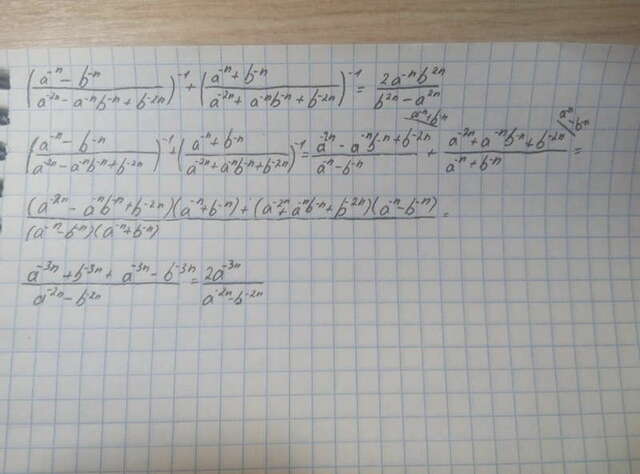 (a⁻ⁿ - b⁻ⁿ / a⁻²ⁿ - a⁻ⁿb⁻ⁿ + b⁻²ⁿ)⁻¹ + (a⁻ⁿ + b⁻ⁿ / a⁻²ⁿ + a⁻ⁿb⁻ⁿ + b⁻²ⁿ)⁻¹ = 2a⁻ⁿb²ⁿ / b²ⁿ - a²ⁿ
(a⁻ⁿ - b⁻ⁿ / a⁻²ⁿ - a⁻ⁿb⁻ⁿ + b⁻²ⁿ)⁻¹ + (a⁻ⁿ + b⁻ⁿ / a⁻²ⁿ + a⁻ⁿb⁻ⁿ + b⁻²ⁿ)⁻¹ = a⁻²ⁿ - a⁻ⁿb⁻ⁿ + b⁻²ⁿ \ a⁻ⁿ + b⁻ⁿ / a⁻ⁿ - b⁻ⁿ + a⁻²ⁿ + a⁻ⁿb⁻ⁿ + b⁻²ⁿ \ a⁻ⁿ - b⁻ⁿ / a⁻ⁿ + b⁻ⁿ =
(a⁻²ⁿ - a⁻ⁿb⁻ⁿ + b⁻²ⁿ)(a⁻ⁿ + b⁻ⁿ) + (a⁻²ⁿ + a⁻ⁿb⁻ⁿ + b⁻²ⁿ)(a⁻ⁿ - b⁻ⁿ) / (a⁻ⁿ - b⁻ⁿ)(a⁻ⁿ + b⁻ⁿ) =
a⁻³ⁿ + b⁻³ⁿ + a⁻³ⁿ - b⁻³ⁿ / a⁻²ⁿ - b⁻²ⁿ = 2a⁻³ⁿ / a⁻²ⁿ - b⁻²ⁿ